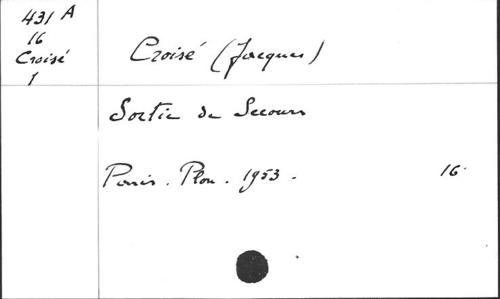 431 A
16
Croisé
1
Croisé (Jacques)
Sortie de Secours
Paris. Plon. 1953. 16